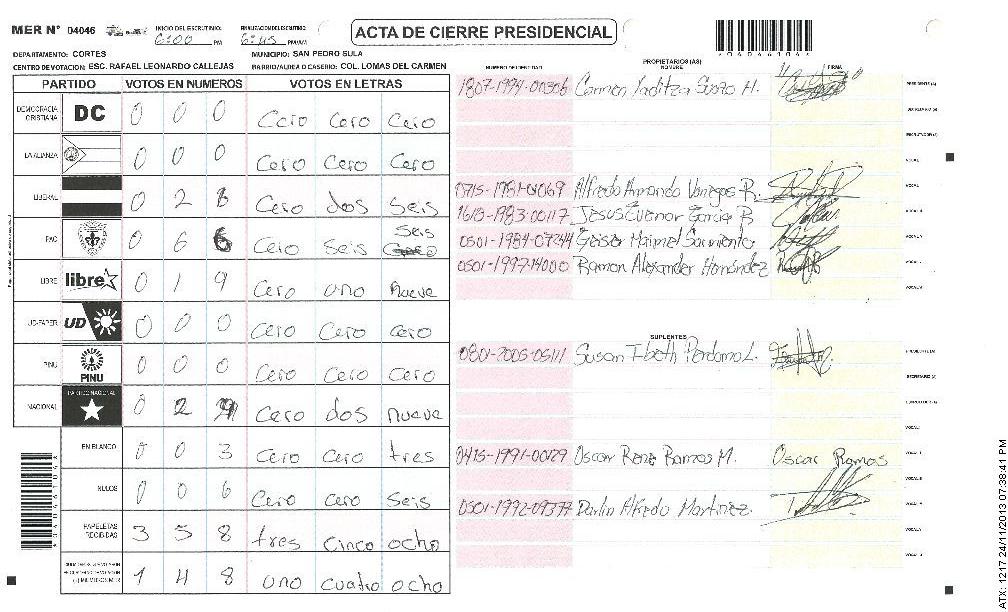 MER N° 04046 INICIO DEL ESCRUTINIO: 6:00 PM FINALIZACION DEL ESCRUTINIO: 6:45 PM/AM ACTA DE CIERRE PRESIDENCIAL
DEPARTAMENTO: CORTES MUNICIPIO: SAN PEDRO SULA
CENTRO DE VOTACION: ESC. RAFAEL LEONARDO CALLEJAS BARRIO/ALDEA O CASERIO: COL. LOMAS DEL CARMEN
PARTIDO VOTOS EN NUMEROS VOTOS EN LETRAS
DEMOCRACIA CRISTIANA DC 0 0 0 Cero Cero Cero
LA ALIANZA 0 0 0 Cero Cero Cero
LIBERAL 0 2 6 Cero dos Seis
PAC 0 6 6 Cero Seis Seis
LIBRE libre 0 1 9 Cero uno nueve
UD-FAPER UD 0 0 0 Cero Cero Cero
PINU PINU 0 0 0 Cero Cero Cero
NACIONAL PARTIDO NACIONAL 0 2 9 Cero dos nueve
EN BLANCO 0 0 3 Cero Cero tres
NULOS 0 0 6 Cero Cero Seis
PAPELETAS RECIBIDAS 3 5 8 tres Cinco ocho
1 4 8 uno cuatro ocho
NUMERO DE IDENTIDAD PROPIETARIOS (AS) NOMBRE FIRMA
1807-1994-00306 Carmen Yaditza Sorto M. PRESIDENTE (A)
SECRETARIO (A)
ESCRUTADOR (A)
VOCAL I
0715-1981-01069 Alfredo Armando Vanegas R. VOCAL
1610-1983-00117 Jesus Garcia B VOCAL
0501-1984-07244 Sarmiento VOCAL
0501-1997-14000 Ramon Alexander Hernández VOCAL
VOCAL
SUPLENTES
0801-2005-05111 Susan Ibeth Perdomo L. PRESIDENTE (A)
SECRETARIO (A)
ESCRUTADOR (A)
VOCAL I
0415-1991-00129 Oscar Rene Ramos M. Oscar Ramos VOCAL
VOCAL
0501-1992-09377 Darlin Alfredo Martinez VOCAL
VOCAL
VOCAL
ATX: 1217 24/11/2013 07:38:41 PM